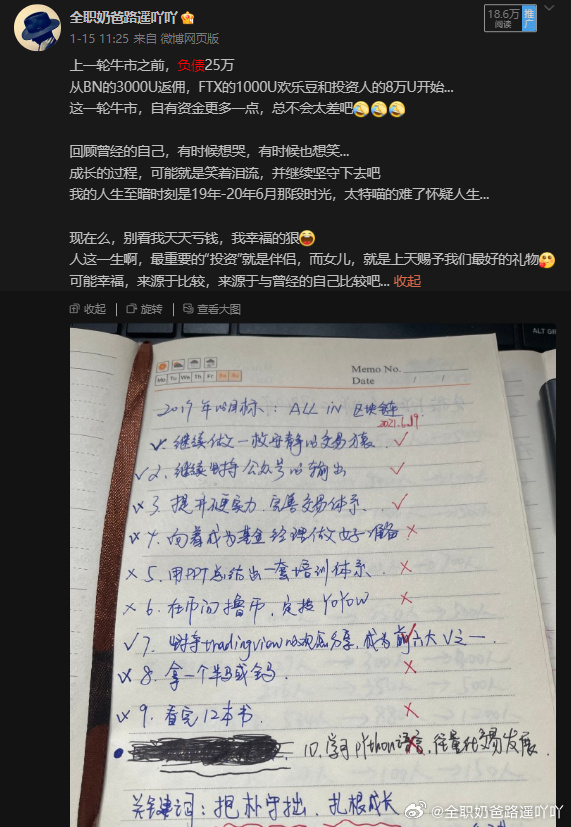 全职奶爸路遥吖吖
1-15 11:25 来自 微博网页版
18.6万
阅读
推广
上一轮牛市之前，负债25万
从BN的3000U返佣，FTX的1000U欢乐豆和投资人的8万U开始...
这一轮牛市，自有资金更多一点，总不会太差吧
回顾曾经的自己，有时候想哭，有时候也想笑...
成长的过程，可能就是笑着泪流，并继续坚守下去吧
我的人生至暗时刻是19年-20年6月那段时光，太特喵的难了怀疑人生...
现在么，别看我天天亏钱，我幸福的狠
人这一生啊，最重要的“投资”就是伴侣，而女儿，就是上天赐予我们最好的礼物
可能幸福，来源于比较，来源于与曾经的自己比较吧... 收起
收起 旋转 查看大图
ALT GR
Memo No.
Mo Tu We Th Fr Sa Su
Date / /
2019年的目标：ALL IN 区块链
2021.6.19
继续做一枚安静的交易员
2、继续坚持公众号的输出
3、提升硬实力，完善交易体系
4、向着成为基金经理做好准备
5、用PPT总结出一套培训体系
6、在币问撸币，定投YOYOW
7、坚持tradingview的观点分享，成为前六大V之一
8、拿一个半马或全马
9、看完12本书
10、学习python语言，往量化交易发展
关键词：抱朴守拙，扎根成长
@全职奶爸路遥吖吖